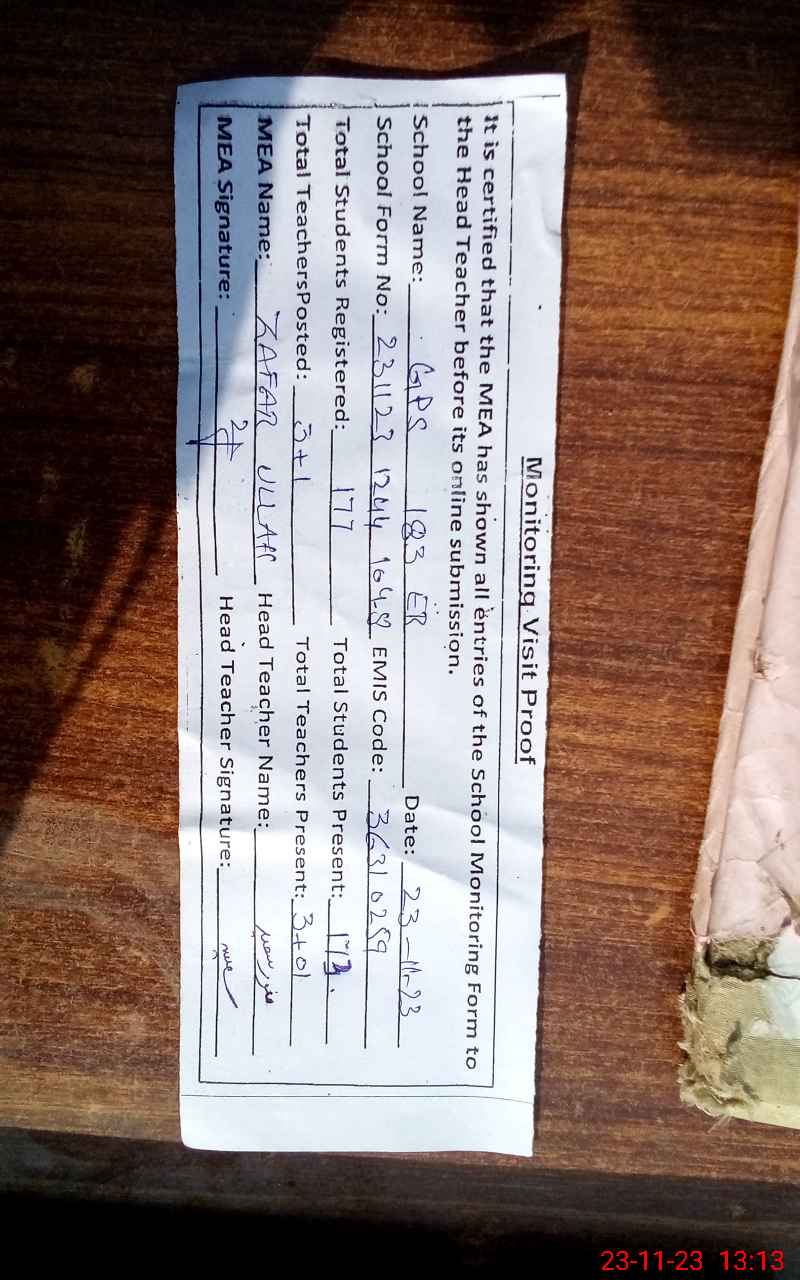 Monitoring Visit Proof
It is certified that the MEA has shown all entries of the School Monitoring Form to
the Head Teacher before its online submission.
School Name: GPS 183 EB Date: 23-11-23
School Form No: 231123 1244 1048 EMIS Code: 36310259
Total Students Registered: 177 Total Students Present: 
Total TeachersPosted: 3+1 Total Teachers Present: 3+01
MEA Name: ZAFAR ULLAH Head Teacher Name:
MEA Signature: Head Teacher Signature:
23-11-23 13:13